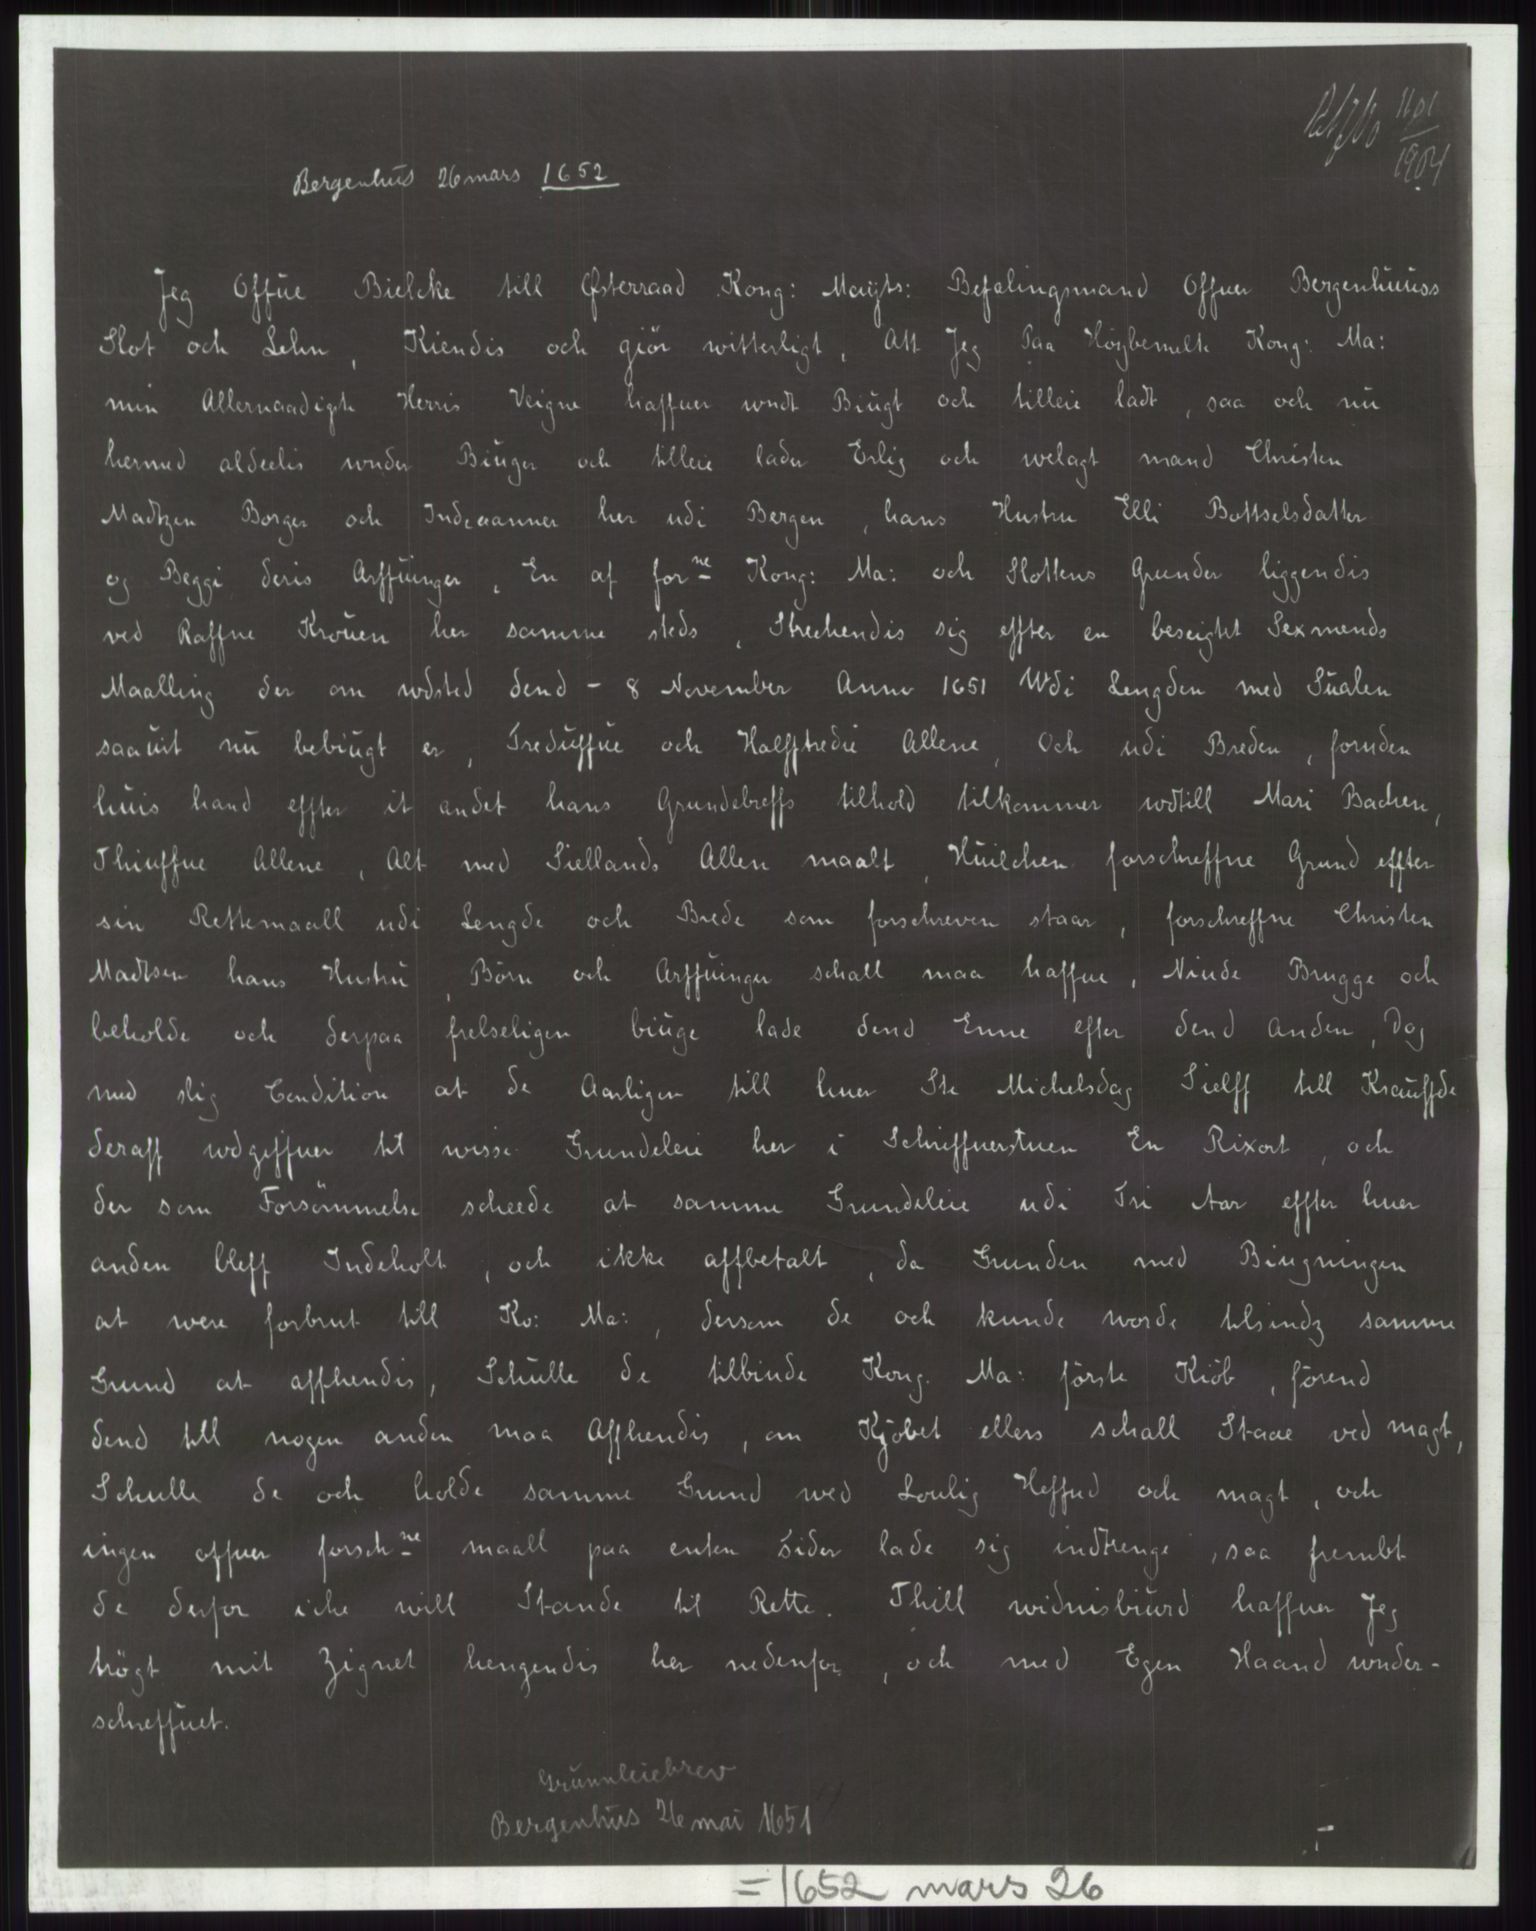 1904
Bergenhus 26 mars 1652
Jeg Offue Bielcke till Østerraad Kong: Mayts: Befalingsmand Offuer Bergenhuuss
Slot och Lehn, Kiendis och giör witterligt, Att Jeg Paa Høybemelte Kong: Ma:
min Allernaadigste Herris Veigne haffuer wndt Biugt och tilleie ladt, saa och nu
hermed aldeelis wnder Biuger och tilleie lader Erlig och welagt mand Christen
Madtzen Borger och Indewaaner her udi Bergen, hans Hustru Elli Bottselsdatter
og Beggi deris Arffuinger, En af forne Kong: Ma: och Slottens Grunder liggendis
ved Raffne Krouen her samme steds, Strechendis sig effter en beseiglet Sexmends
Maalling der om wdsted dend - 8 November Anno 1651 Wdi Lengden med Sualen
saauit nu bebiugt er, Treduffue och Halfftredie Allene, Och udi Breden, foruden
huis hand effter it andet hans Grundebreffs tilhold tilkommer wdtill Mari Bachen,
Thiuffue Allene, Alt med Siellands Allen maalt, Huilchen forschreffne Grund effter
sin Rettemaall udi Lengde och Brede som forschreven staar, forschreffne Christen
Madtsen hans Hustru, Börn och Arffuinger schall maa haffue, Niude Brugge och
beholde och derpaa frelseligen biuge lade dend Enne efter dend anden, Dog
med slig Condition at de Aarligen till huer Ste Michelsdag Sielff till Krauffde
deraff wdgiffuer til wisse Grundeleie her i Schriffuerstuen En Rixort, och
der som Forsömmelse scheede at samme Grundeleie udi Tri Aar effter huer
anden bleff Indeholt, och ikke affbetalt, da Grunden med Biugningen
at were forbrut till Ko: Ma:, dersom de och kunde worde tilsindz samme
Grund at affhendis, Schulle de tilbiude Kong. Ma: förste Kiöb, förend
dend till nogen anden maa Affhendis, om Kjöbet ellers schall Staae ved magt,
Schulle de och holde samme Grund wed Loulig Heffud och magt, och
ingen offuer forschne maall paa enten Sider lade sig indtrenge, saa frembt
de derfor iche will Stande til Rette. Thill widnisbiurd haffuer Jeg
trögt mit Zignet hengendis her nedenfor, och med Egen Haand wnder-
schreffuet.
Grunnleiebrev
Bergenhus 26 mai 1651
= 1652 mars 26